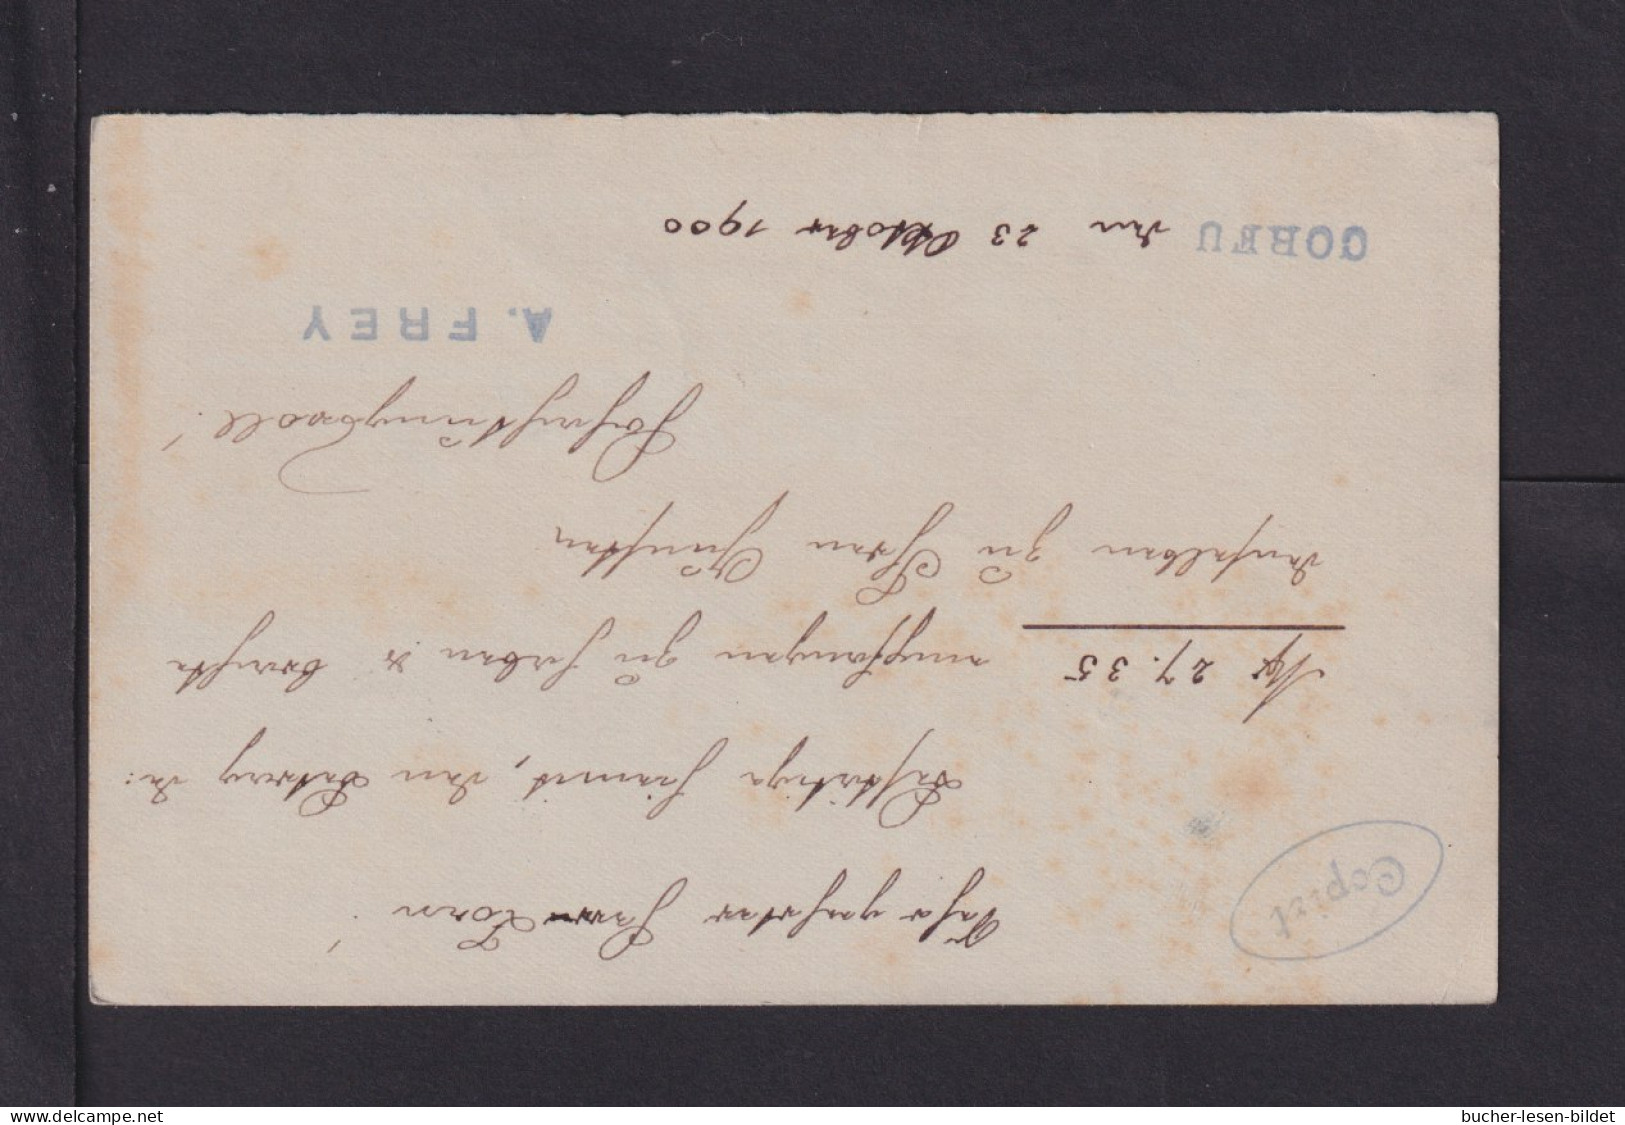 Copirt
Sehr geehrter Herr Zorn!
Bestätige hiermit, den Betrag de:
Mk 27.35 empfangen zu haben & brachte
denselben zu Ihren Gunsten
Hochachtungsvoll!
A. FREY
CORFU den 23 Oktober 1900
delcampe.net
bucher-lesen-bildet